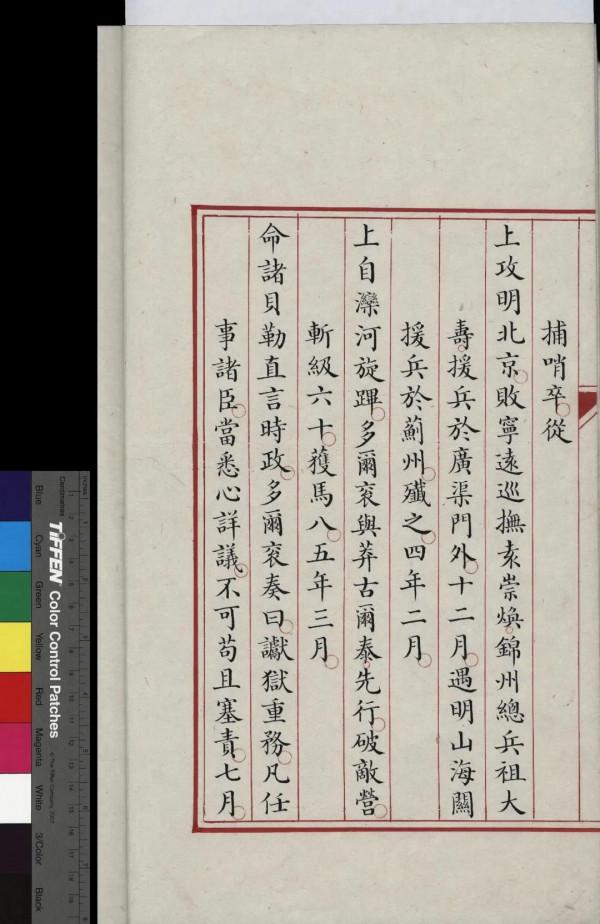 捕哨卒從
上攻明北京敗寧遠巡撫袁崇煥錦州總兵祖大
壽援兵於廣渠門外十二月遇明山海關
援兵於薊州殲之四年二月
上自灤河旋蹕多爾袞與莽古爾泰先行破敵營
斬級六十獲馬八五年三月
命諸貝勒直言時政多爾袞奏曰讞獄重務凡任
事諸臣當悉心詳議不可苟且塞責七月
TIFFEN Color Control Patches
© The Tiffen Company, 2007
Centimetres
Inches
Blue Cyan Green Yellow Red Magenta White 3/Color Black